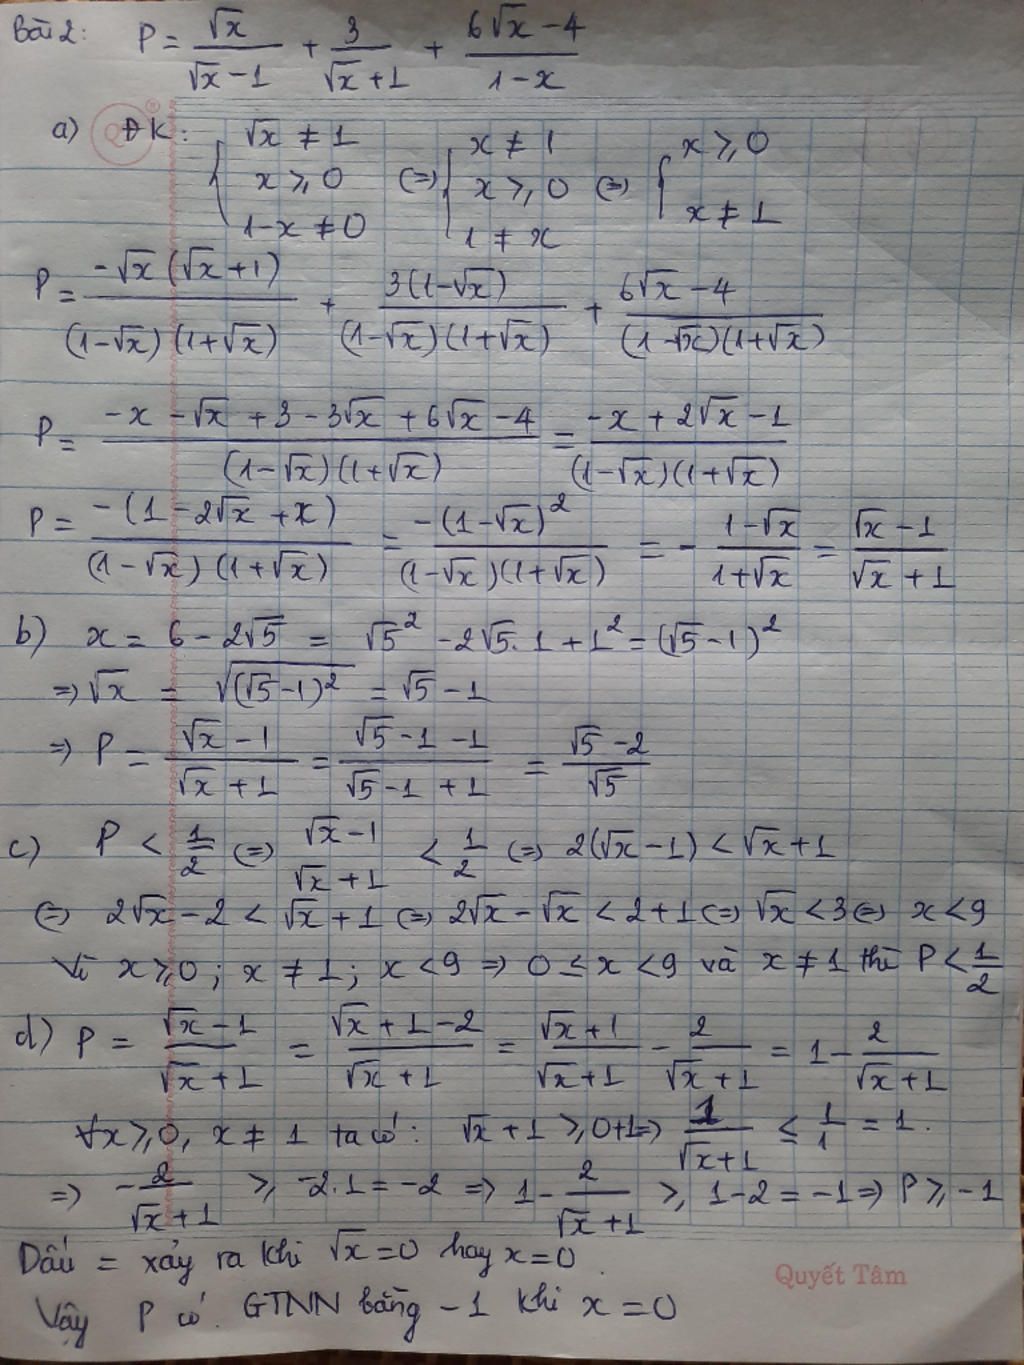 Bài 2: P = √x/(√x − 1) + 3/(√x + 1) + (6√x − 4)/(1 − x)
a) ĐK: { √x ≠ 1 ; x ≥ 0 ; 1 − x ≠ 0 (=) { x ≠ 1 ; x ≥ 0 ; 1 ≠ x (=) { x ≥ 0 ; x ≠ 1
P = −√x(√x + 1)/((1 − √x)(1 + √x)) + 3(1 − √x)/((1 − √x)(1 + √x)) + (6√x − 4)/((1 − √x)(1 + √x))
P = (−x − √x + 3 − 3√x + 6√x − 4)/((1 − √x)(1 + √x)) = (−x + 2√x − 1)/((1 − √x)(1 + √x))
P = −(1 − 2√x + x)/((1 − √x)(1 + √x)) = −(1 − √x)²/((1 − √x)(1 + √x)) = − (1 − √x)/(1 + √x) = (√x − 1)/(√x + 1)
b) x = 6 − 2√5 = √5² − 2√5.1 + 1² = (√5 − 1)²
=> √x = √((√5 − 1)²) = √5 − 1
=> P = (√x − 1)/(√x + 1) = (√5 − 1 − 1)/(√5 − 1 + 1) = (√5 − 2)/√5
c) P < 1/2 (=) (√x − 1)/(√x + 1) < 1/2 (=) 2(√x − 1) < √x + 1
(=) 2√x − 2 < √x + 1 (=) 2√x − √x < 2 + 1 (=) √x < 3 (=) x < 9
Vì x ≥ 0 ; x ≠ 1 ; x < 9 => 0 ≤ x < 9 và x ≠ 1 thì P < 1/2
d) P = (√x − 1)/(√x + 1) = (√x + 1 − 2)/(√x + 1) = (√x + 1)/(√x + 1) − 2/(√x + 1) = 1 − 2/(√x + 1)
∀x ≥ 0, x ≠ 1 ta có: √x + 1 ≥ 0+1 => 1/(√x + 1) ≤ 1/1 = 1.
=> −2/(√x + 1) ≥ −2.1 = −2 => 1 − 2/(√x + 1) ≥ 1 − 2 = −1 => P ≥ −1
Dấu = xảy ra khi √x = 0 hay x = 0.
Quyết Tâm
Vậy P có GTNN bằng −1 khi x = 0